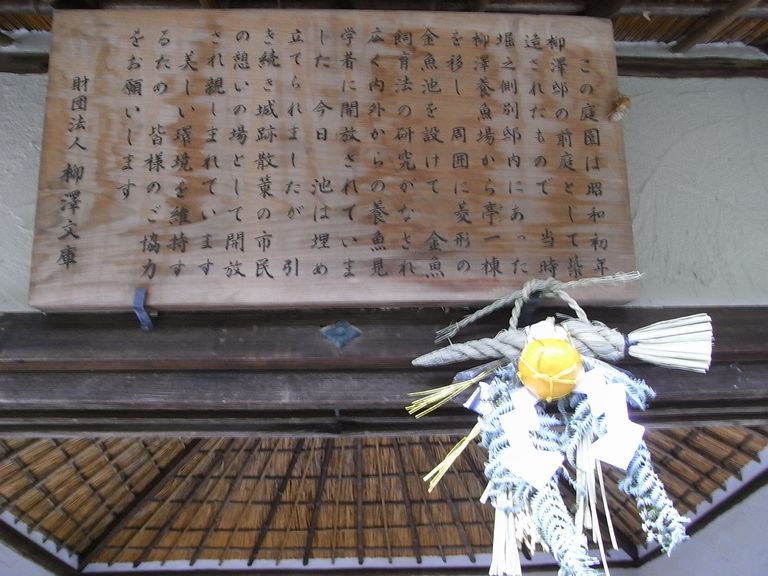 この庭園は昭和初年
柳澤邸の前庭として築
造されたもので 当時
堀之側別邸内にあった
柳澤養魚場から亭一棟
を移し 周囲に菱形の
金魚池を設けて 金魚
飼育法の研究がなされ
広く内外からの養魚見
学者に開放されていま
した 今日 池は埋め
立てられましたが 引
き続き城跡散策の市民
の憩いの場として開放
され親しまれています
美しい環境を維持す
るため 皆様のご協力
をお願いします
財団法人 柳澤文庫